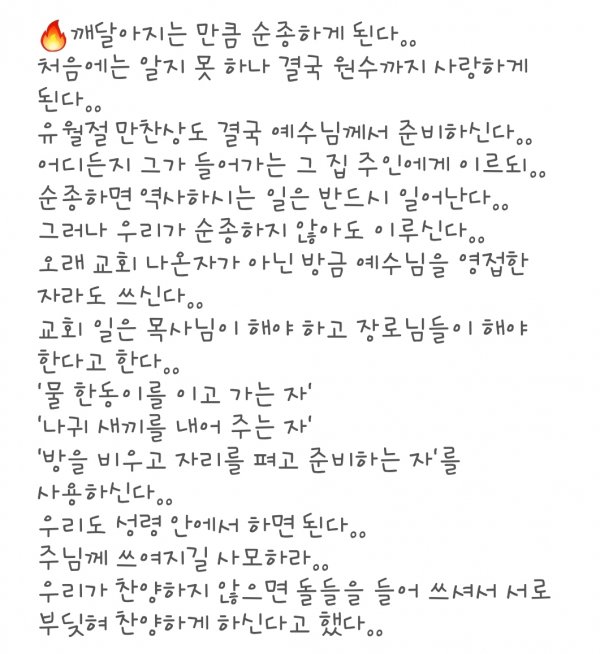 🔥깨달아지는 만큼 순종하게 된다。。
처음에는 알지 못 하나 결국 원수까지 사랑하게
된다。。
유월절 만찬상도 결국 예수님께서 준비하신다。。
어디든지 그가 들어가는 그 집 주인에게 이르되。。
순종하면 역사하시는 일은 반드시 일어난다。。
그러나 우리가 순종하지 않아도 이루신다。。
오래 교회 나온자가 아닌 방금 예수님을 영접한
자라도 쓰신다。。
교회 일은 목사님이 해야 하고 장로님들이 해야
한다고 한다。。
'물 한동이를 이고 가는 자'
'나귀 새끼를 내어 주는 자'
'방을 비우고 자리를 펴고 준비하는 자'를
사용하신다。。
우리도 성령 안에서 하면 된다。。
주님께 쓰여지길 사모하라。。
우리가 찬양하지 않으면 돌들을 들어 쓰셔서 서로
부딪혀 찬양하게 하신다고 했다。。